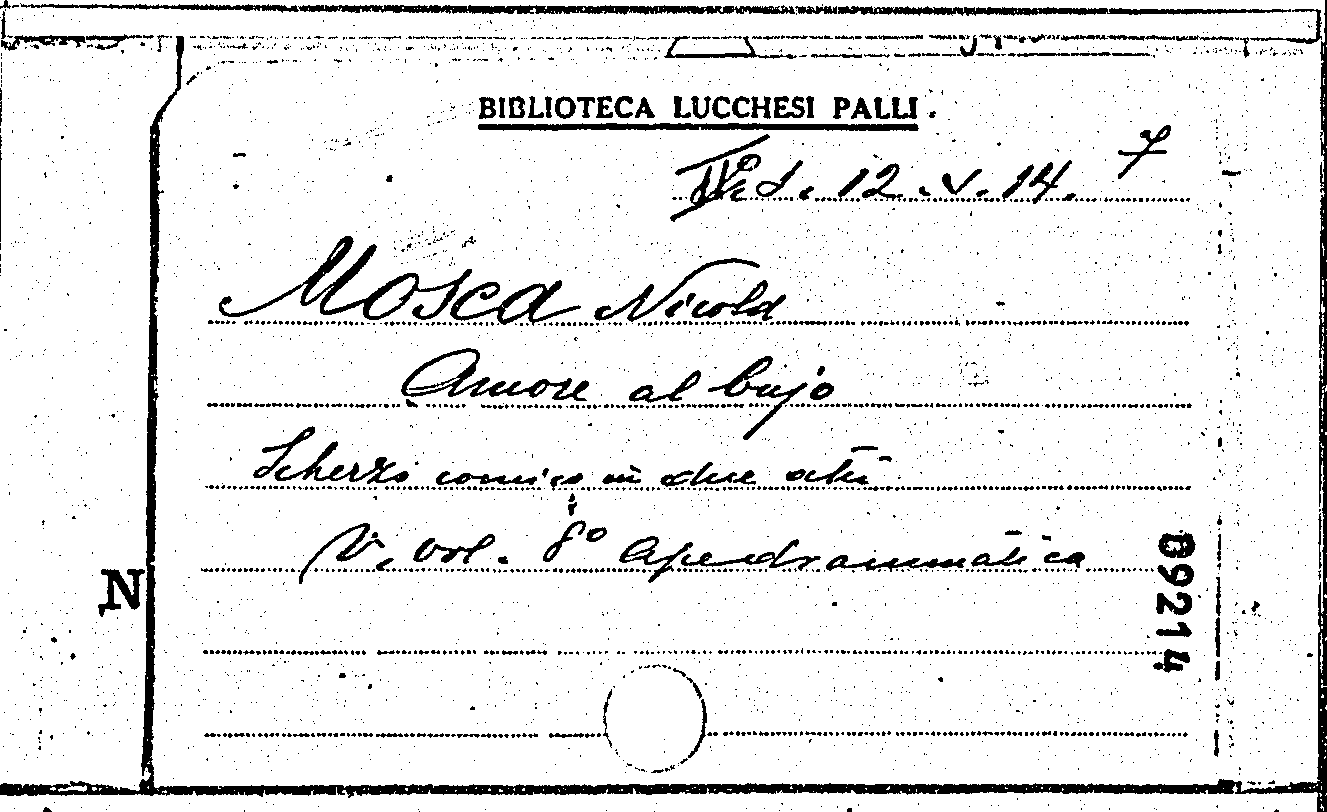 BIBLIOTECA LUCCHESI PALLI.
12.V.14. 7
Mosca Nicola
Amore al bujo
Scherzo comico in due atti
V. vol. 8° Ape drammatica
N
89214